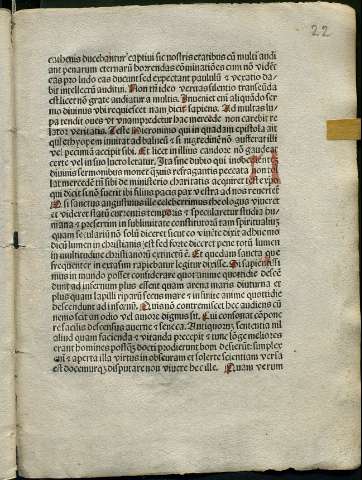 22
cathenis ducebantur captiui sic nostris etatibus cū multi audi
ant penarum eternarū horrendas cōminatiōes cum nō vidēt
eas pro ludo eas ducunt sed expectant paululū &
bit intellectū auditui. Non tn̄ ideo veritas silentio transeūda
est licet nō grate audiatur a multis. Inueniet eni aliqn̄do ser
mo diuinus vbi requiescet nam dicit sapiens. Ad multas lu
pa rendet oues vt vnam predetur hac mercede non carebit re
lator veritatis. Teste Hieronimo qui in quadam epistola ait
qui ethyopem inuitat ad balneū & si nigredinē nō aufferat illi
vel pecuniā accipit sibi. Et licet in illius candore nō gaudeat
certe vel in suo lucro letatur. Ita sine dubio qui
diuinis sermonibus monet quis refragantis peccata non
lat mercedē tn̄ sibi de ministerio charitatis acquiret
qui dicit si nō fuerit ibi filius pacis pax vestra ad vos reuertet
O si sanctus augustinus ille celeberrimus theologus viueret
et videret statū currentis temporis & specularetur studia hu
mana & presertim in sublimitate constitutorū tam spiritualiuȝ
quam seculariū nō solū diceret sicut eo viuēte dixit adhuc nō
dicū lumen in christianis est sed forte diceret pene totū lumen
in multitudine christianorū extinctū ē. Et quedam sancta que
frequenter in extasim rapiebatur legitur dixisse. Si sapientissi
mus in mundo posset considerare quot anime quotidie descē
dunt ad infernum plus essent quam arena maris diuturna et
plus quam lapilli parui secus mare & infinite anime quotidie
descendunt ad infernū. Quis nō contremiscet hec audiens cū
nemo scit vn odio vel amore dignus sit. Cui consonat cōpone
re facilis descensus auerne & seneca. Antiquorum sententia nil
aliud quam facienda & vitanda precepit & tunc lōge meliores
erant homines postȝ docti prodierunt boni desierūt: simplex
eni & aperta illa virtus in obscuram et solerte scientiam versa
est docemurqȝ disputare non viuere hec ille. Quam verum